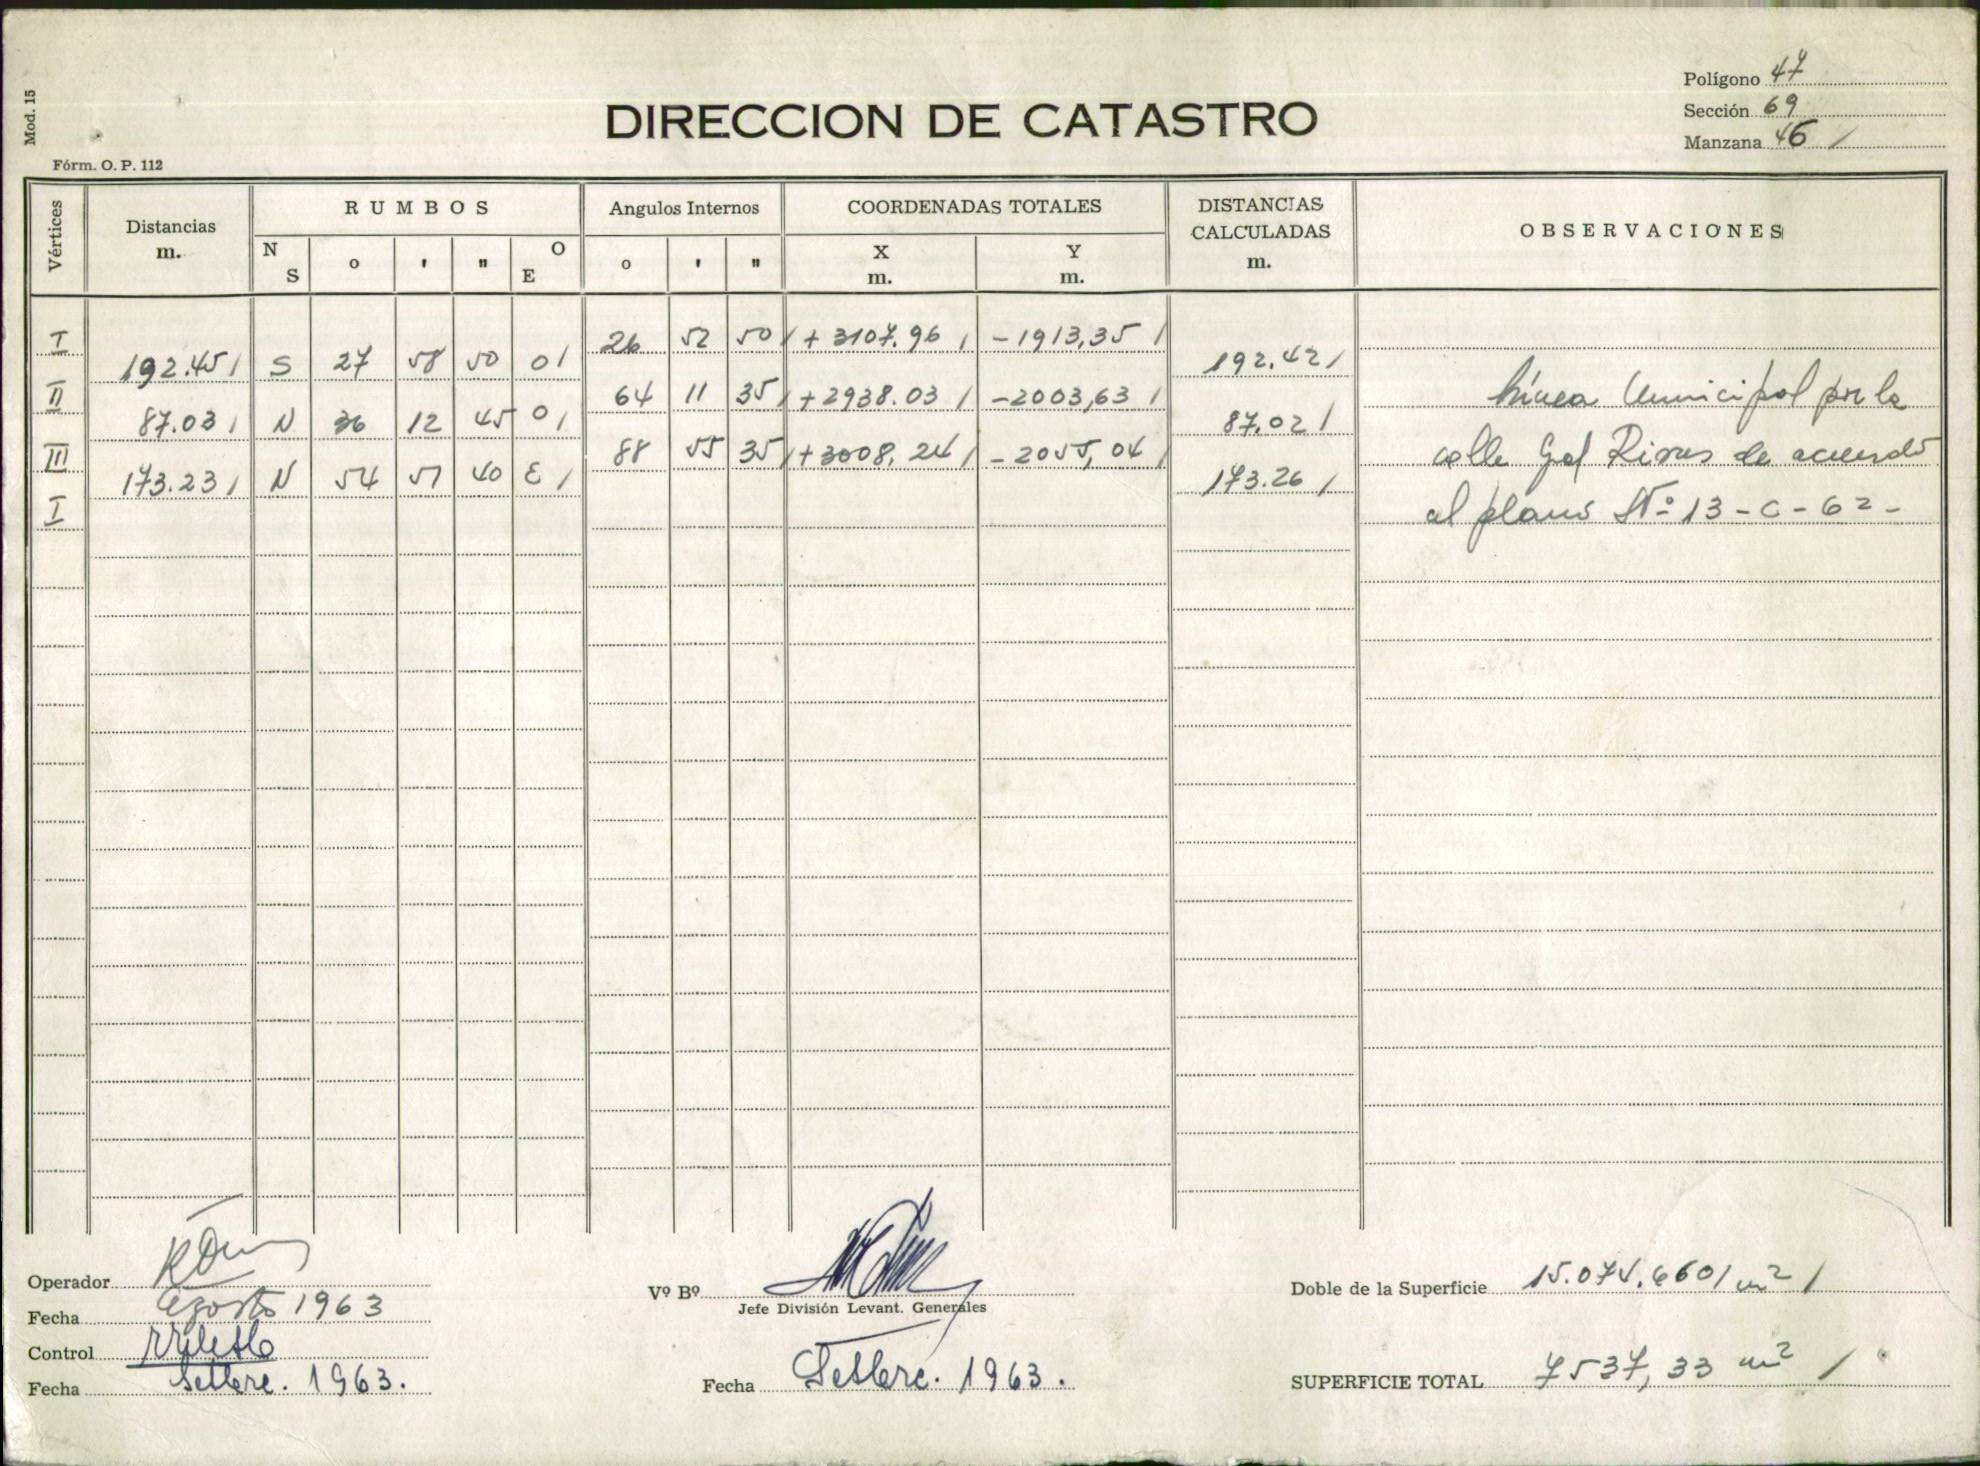 Mod. 15
Fórm. O. P. 112
DIRECCION DE CATASTRO
Polígono 47
Sección 69
Manzana 46 /
Vértices
Distancias m.
RUMBOS
N S ° ' " O E
Angulos Internos
° ' "
COORDENADAS TOTALES
X m. Y m.
DISTANCIAS CALCULADAS m.
OBSERVACIONES
I 26 52 50 / + 3107.96 / - 1913,35 /
192.45 / S 27 58 50 O / 192.42 /
II 64 11 35 / + 2938.03 / - 2003,63 / Línea Municipal por la
87.03 / N 36 12 45 O / 87.02 /
III 88 55 35 / + 3008,24 / - 2055,04 / calle Gal Rivas de acuerdo
173.23 / N 54 51 40 E / 173.26 /
I al plano Nº 13-C-62-
Operador
Fecha Agosto 1963
Control
Fecha Setbre. 1963.
Vº Bº
Jefe División Levant. Generales
Fecha Setbre. 1963.
Doble de la Superficie 15.074.660 / m² /
SUPERFICIE TOTAL 7537,33 m² /